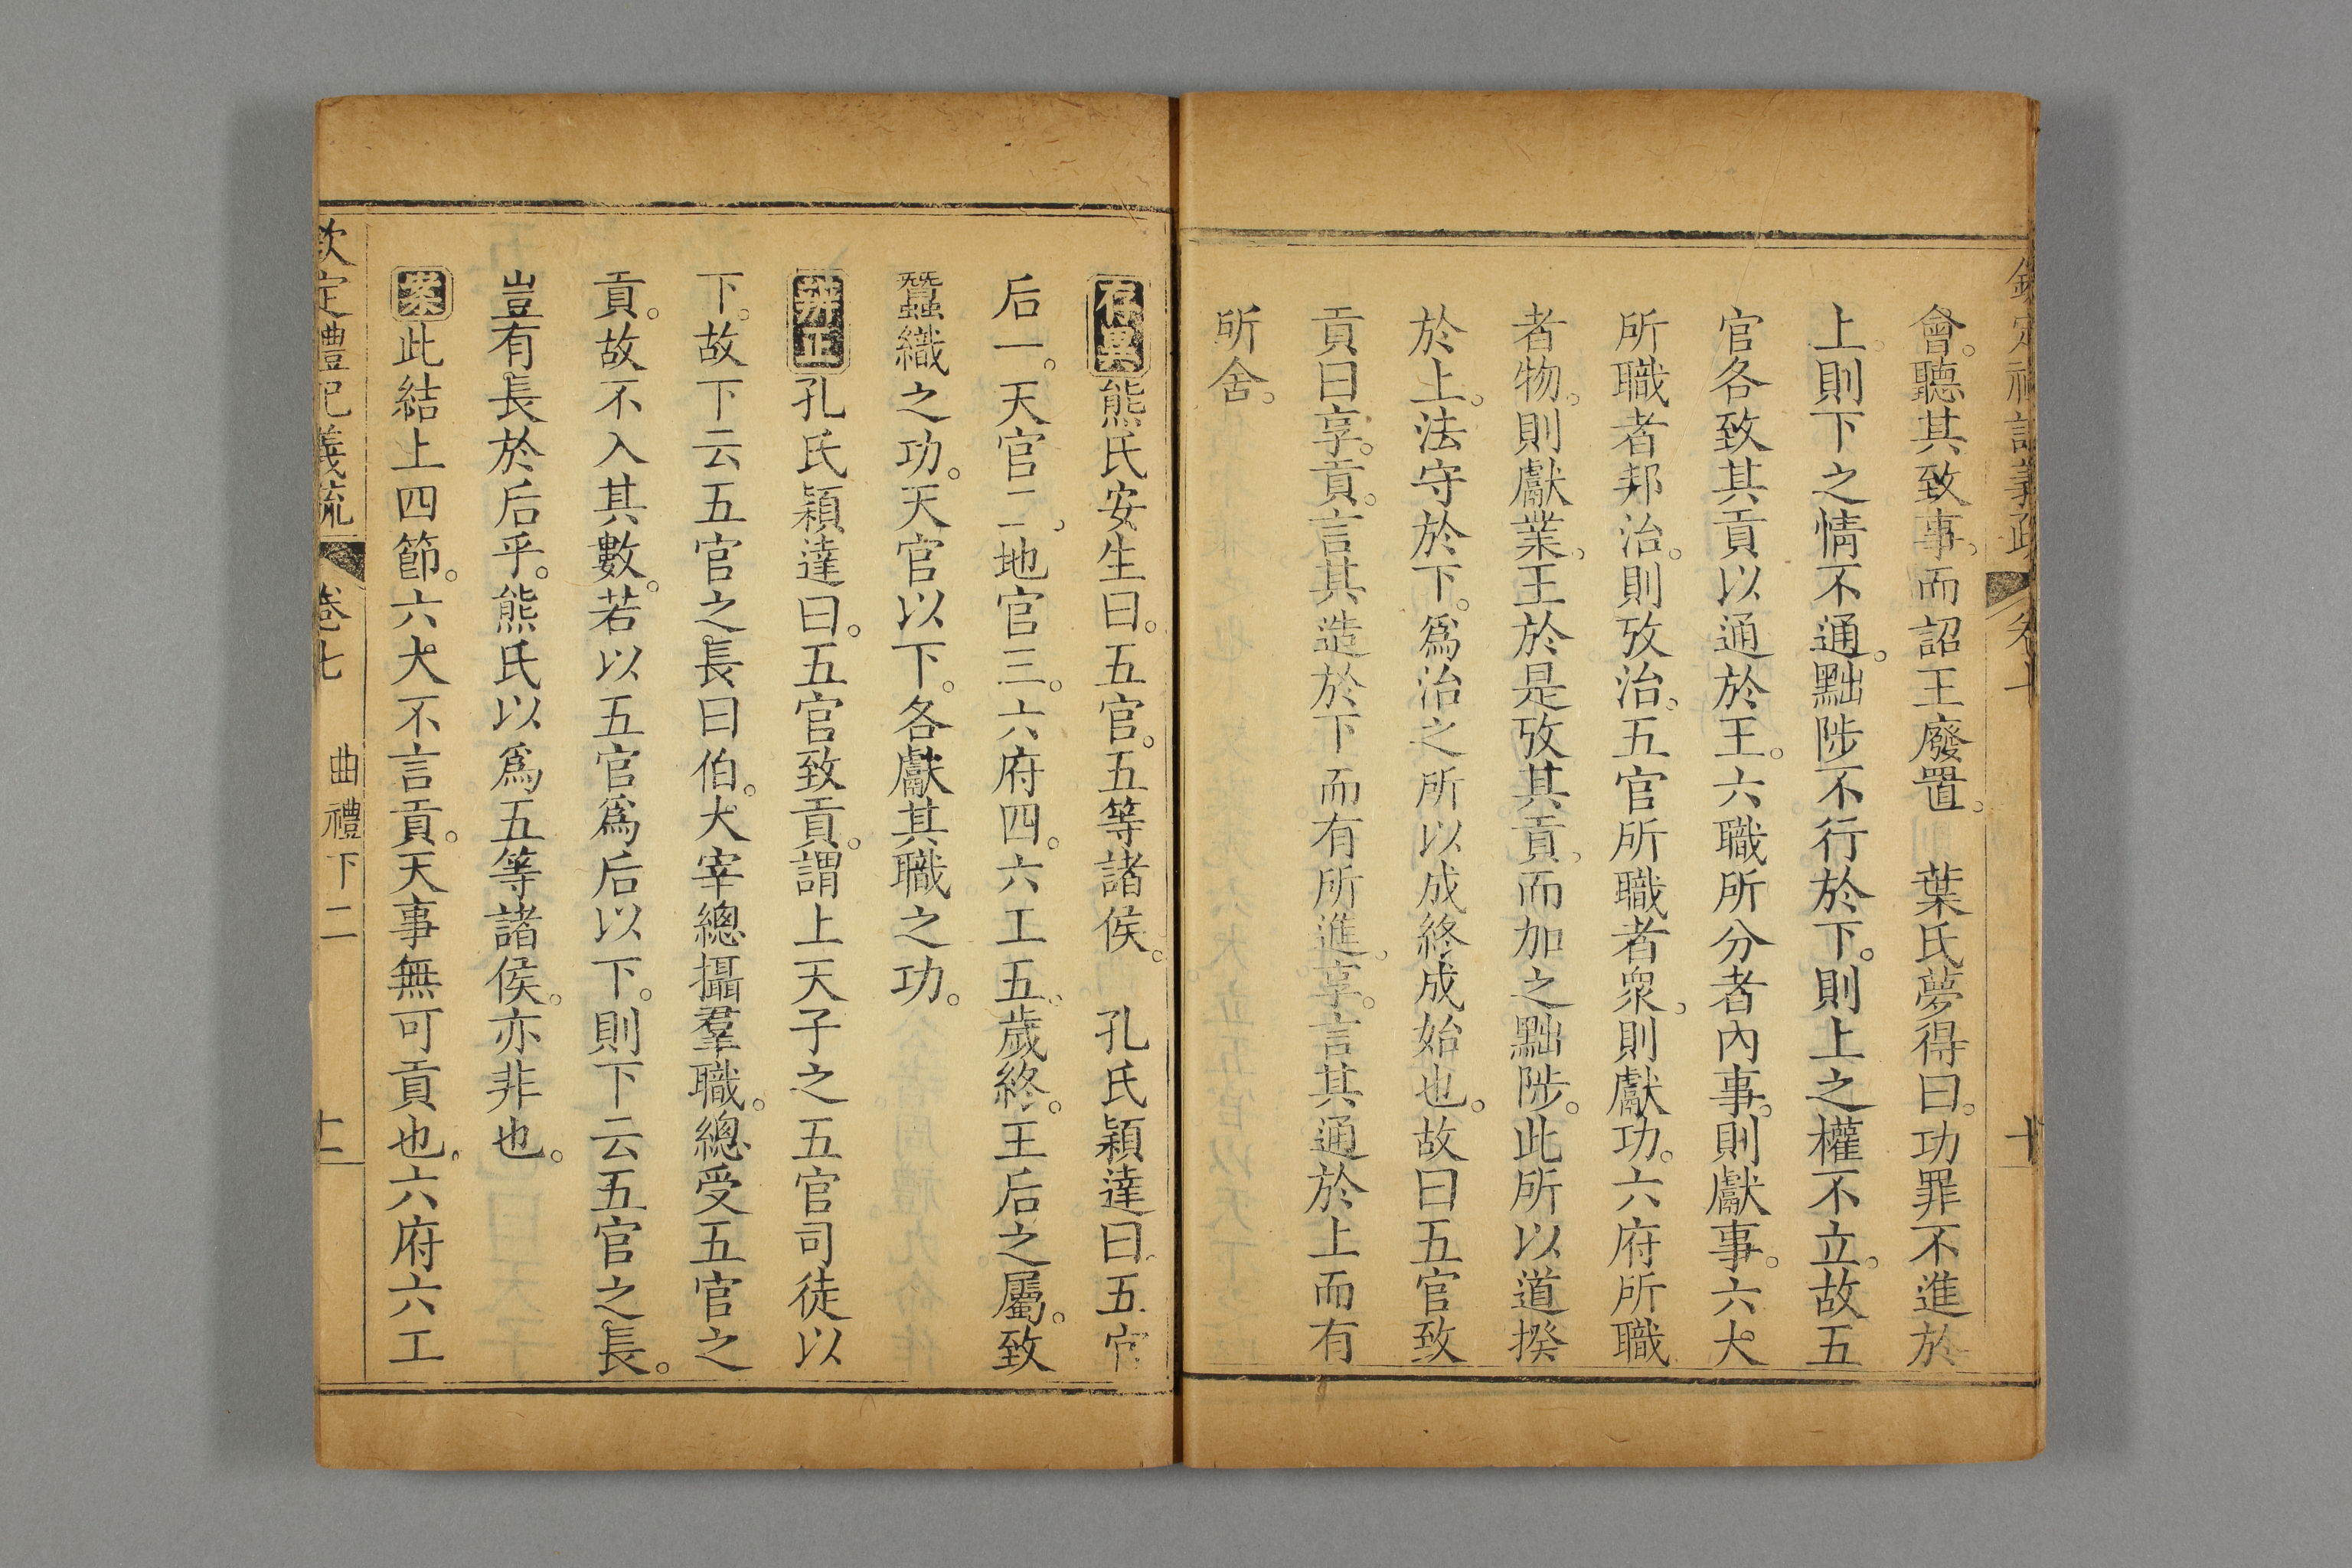 欽定禮記義疏 卷七 十
會。聽其致事。而詔王廢置。 葉氏夢得曰。功罪不進於
上。則下之情不通。黜陟不行於下。則上之權不立。故五
官各致其貢以通於王。六職所分者內事。則獻事。六大
所職者邦治。則攷治。五官所職者衆。則獻功。六府所職
者物。則獻業。王於是攷其貢。而加之黜陟。此所以道揆
於上。法守於下。爲治之所以成終成始也。故曰五官致
貢曰享。貢。言其造於下而有所進。享。言其通於上而有
所舍。
存異熊氏安生曰。五官。五等諸侯。 孔氏穎達曰。五官
后一。天官二。地官三。六府四。六工五。歲終。王后之屬。致
蠶織之功。天官以下。各獻其職之功。
辨正孔氏穎達曰。五官致貢。謂上天子之五官司徒以
下。故下云五官之長曰伯。大宰總攝羣職。總受五官之
貢。故不入其數。若以五官爲后以下。則下云五官之長。
豈有長於后乎。熊氏以爲五等諸侯。亦非也。
案此結上四節。六大不言貢。天事無可貢也。六府六工
欽定禮記義疏 卷七 曲禮下二 十一